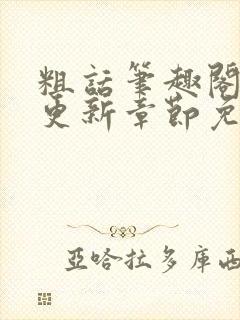 粗話筆趣閣
更新章節免
亞哈拉多庫西